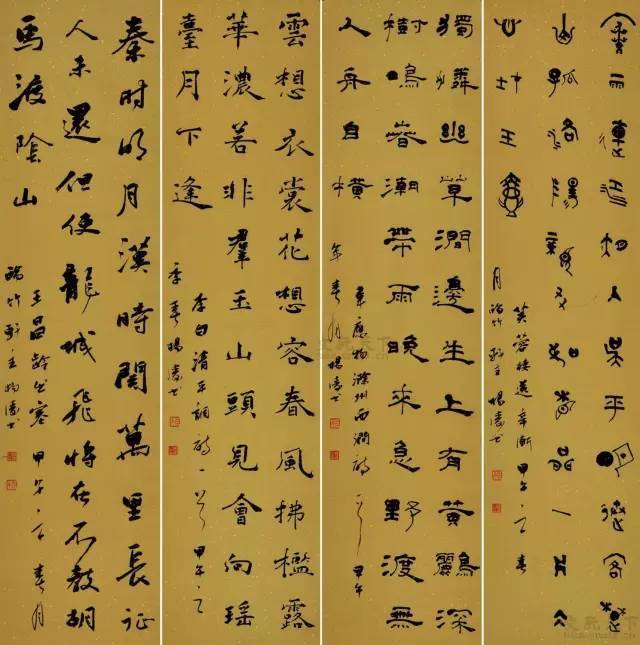 寒雨連江夜入吳平明送客楚
山孤洛陽親友如相問一片冰
心在玉壺
芙蓉樓送辛漸甲午之春
月瑞竹軒主楊濤書
獨憐幽草澗邊生上有黃鸝深
樹鳴春潮帶雨晚來急野渡無
人舟自橫
韋應物滁州西澗詩一首甲午
年春月楊濤書
雲想衣裳花想容春風拂檻露
華濃若非羣玉山頭見會向瑤
臺月下逢
李白清平調詩一首甲午之
季春楊濤書
秦時明月漢時關萬里長征
人未還但使龍城飛將在不教胡
馬渡陰山
王昌齡出塞甲午之春月
瑞竹軒主楊濤書